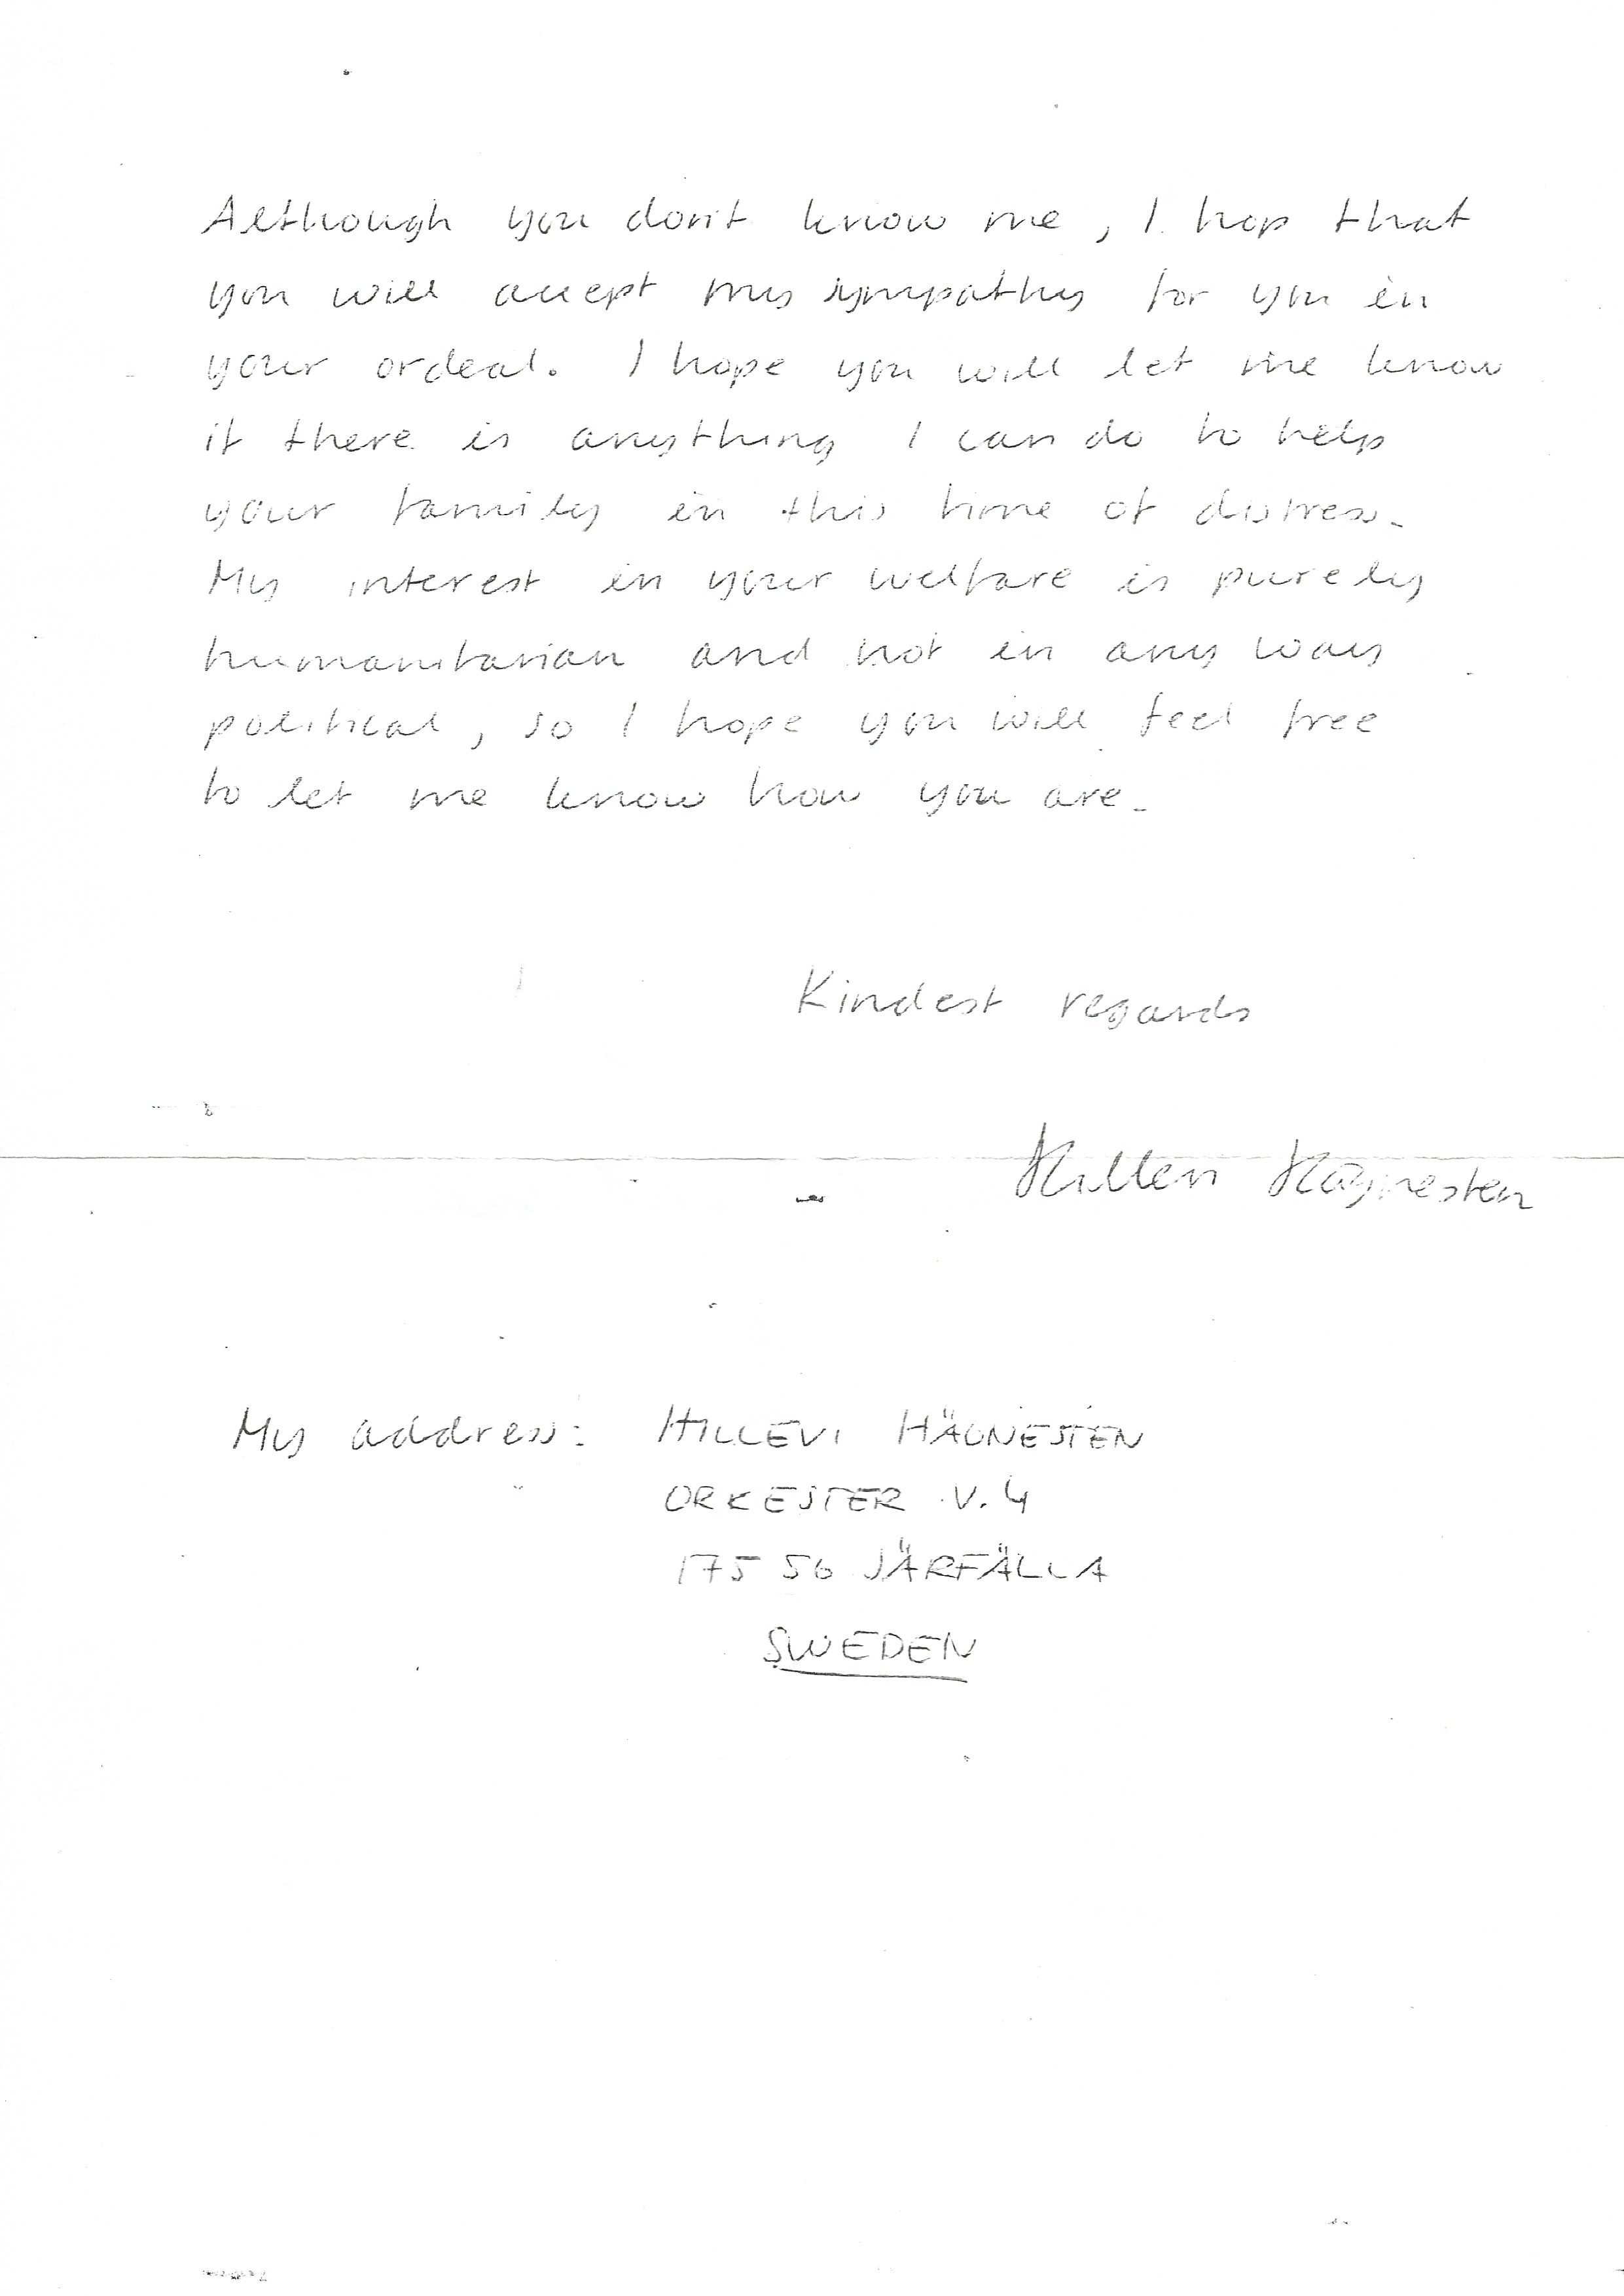 Although you don't know me, I hop that
you will accept my sympathy for you in
your ordeal. I hope you will let me know
if there is anything I can do to help
your family in this time of distress.
My interest in your welfare is purely
humanitarian and not in any way
political, so I hope you will feel free
to let me know how you are.
Kindest regards
Hillevi Hägnesten
My address: HILLEVI HÄGNESTEN
ORKESTER V. 4
175 56 JÄRFÄLLA
SWEDEN